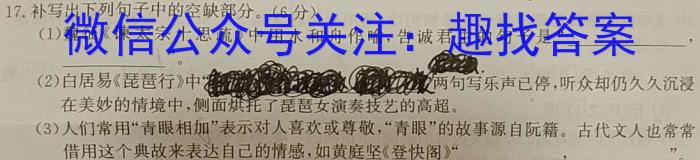 17.补写出下列句子中的空缺部分。(6分)
微信公众号关注：趣找答案
(1)
(2)白居易《琵琶行》中“ 两句写乐声已停，听众却仍久久沉浸
在美妙的情境中，侧面烘托了琵琶女演奏技艺的高超。
(3)人们常用“青眼相加”表示对人喜欢或尊敬，“青眼”的故事源自阮籍。古代文人也常常
借用这个典故来表达自己的情感，如黄庭坚《登快阁》“ ， ”